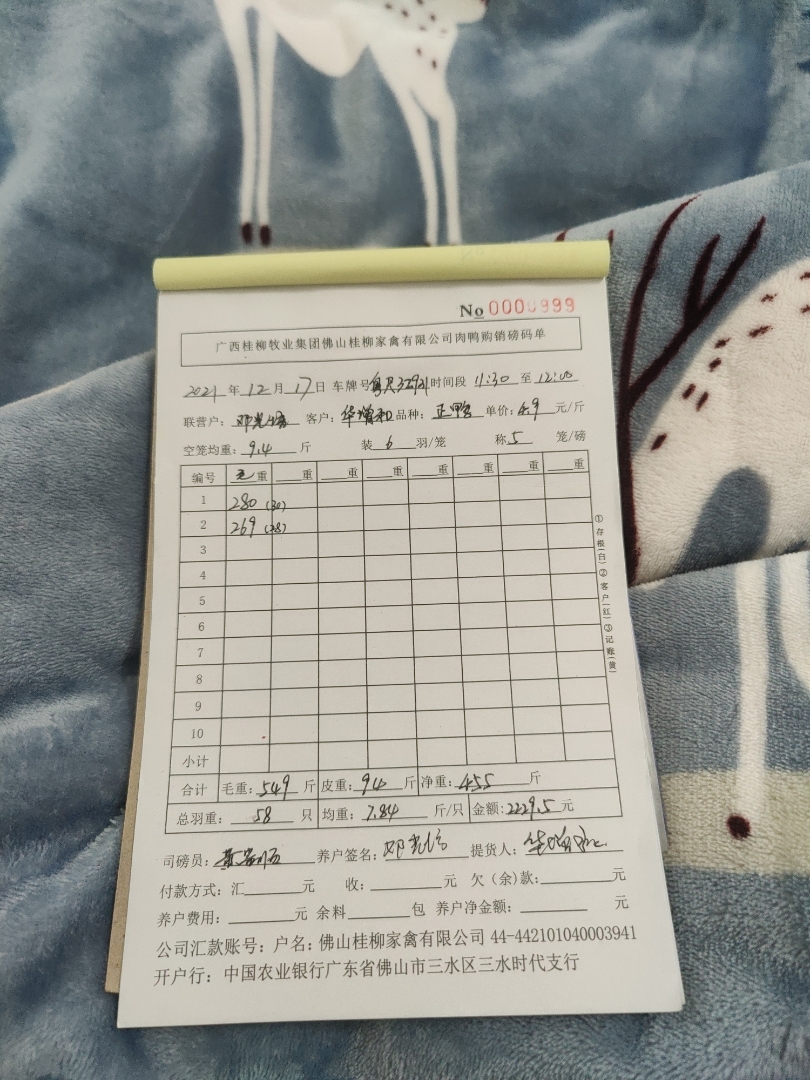 No 0000999
广西桂柳牧业集团佛山桂柳家禽有限公司肉鸭购销磅码单
2021 年 12 月 17 日 车牌号 时间段 11:30 至 12:00
联营户: 客户: 华增和 品种: 正鸭 单价: 4.9 元/斤
空笼均重: 9.4 斤 装 6 羽/笼 称 5 笼/磅
编号 毛重 重 重 重 重 重 重 重
1 280 (30)
2 269 (28)
3
4
5
6
7
8
9
10
小计
合计 毛重: 549 斤 皮重: 94 斤 净重: 455 斤
总羽重: 58 只 均重: 7.84 斤/只 金额: 2229.5 元
司磅员: 养户签名: 提货人:
付款方式: 汇 元 收: 元 欠(余)款: 元
养户费用: 元 余料 包 养户净金额: 元
公司汇款账号: 户名: 佛山桂柳家禽有限公司 44-442101040003941
开户行: 中国农业银行广东省佛山市三水区三水时代支行
①存根(白)②客户(红)③记账(黄)